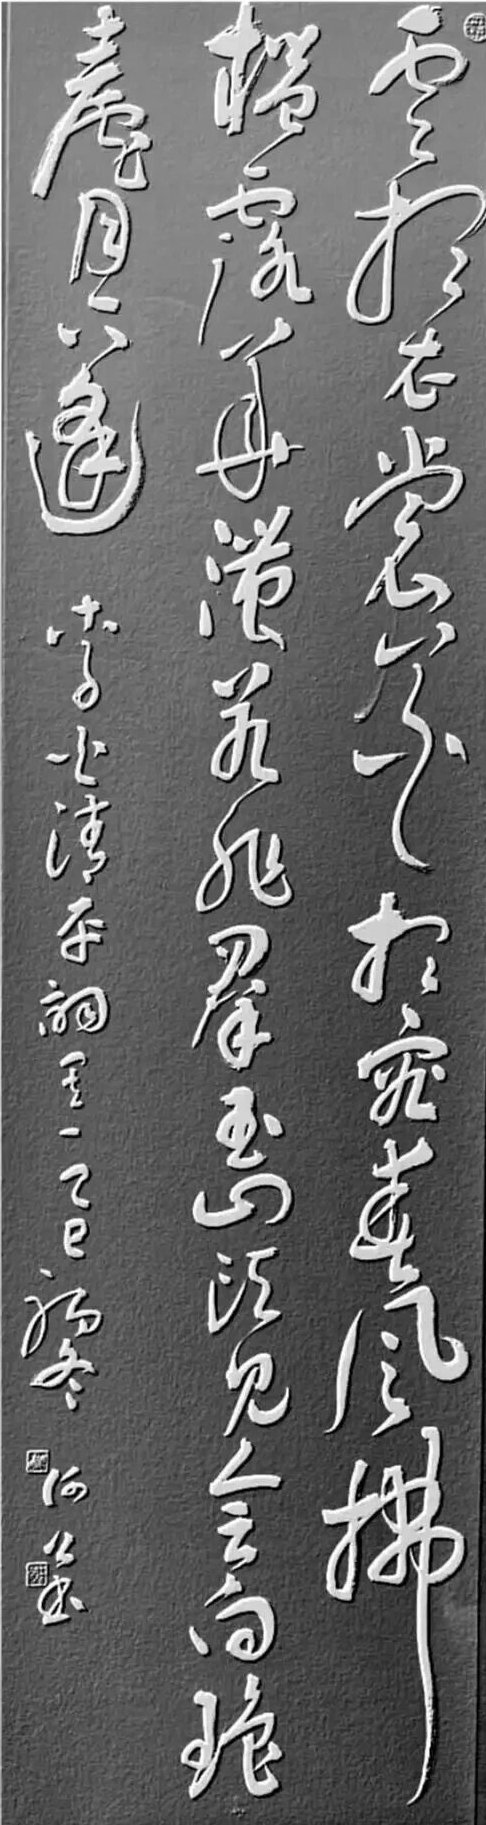 雲想衣裳花想容春風拂
檻露華濃若非羣玉山頭見會向瑤
臺月下逢 李白清平詞其一乙巳冬 書